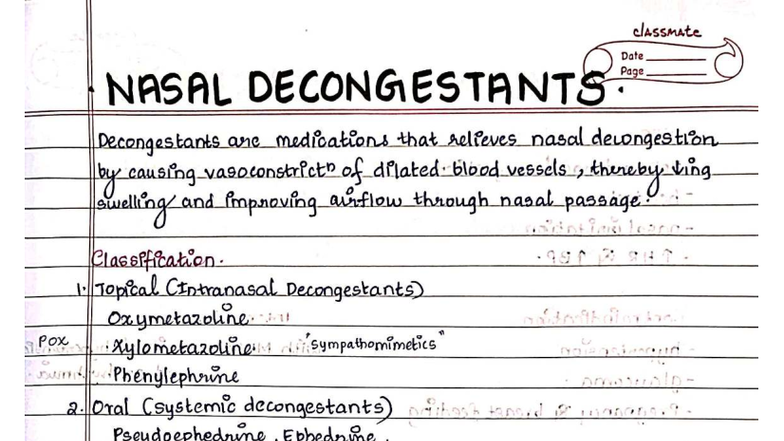 classmate
Date
Page
NASAL DECONGESTANTS.
Decongestants are medications that relieves nasal decongestion
by causing vasoconstrictⁿ of dilated blood vessels, thereby ↓ing
swelling and improving airflow through nasal passage.
Classification.
1. Topical (Intranasal Decongestants)
Oxymetazoline
POX Xylometazoline "Sympathomimetics"
Phenylephrine
2. Oral (systemic decongestants)
Pseudoephedrine, Ephedrine.